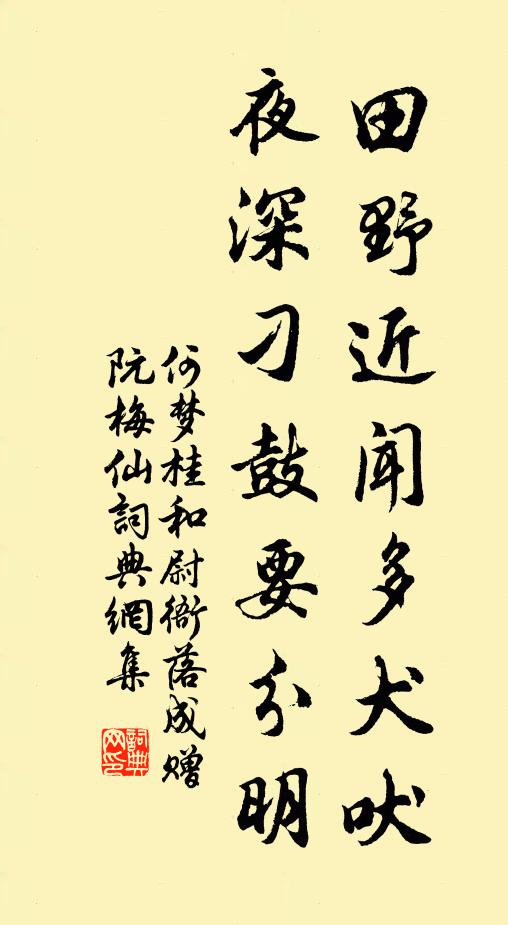 田野近闻多犬吠
夜深刁鼓要分明
何梦桂和尉衙落成赠
阮梅仙詞典網集
詞典网印